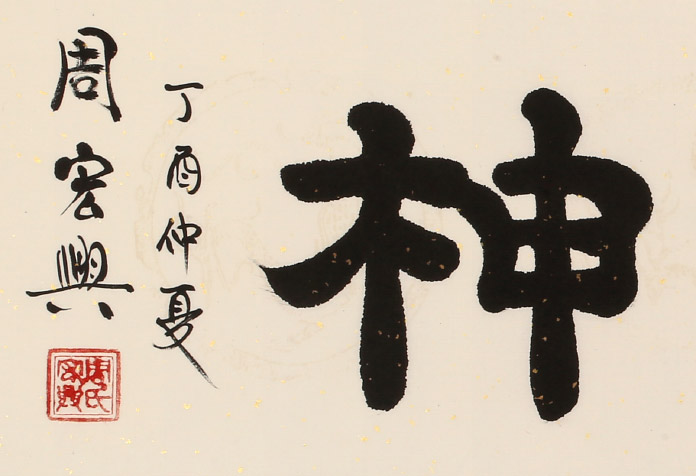 神
丁酉仲夏
周宏興